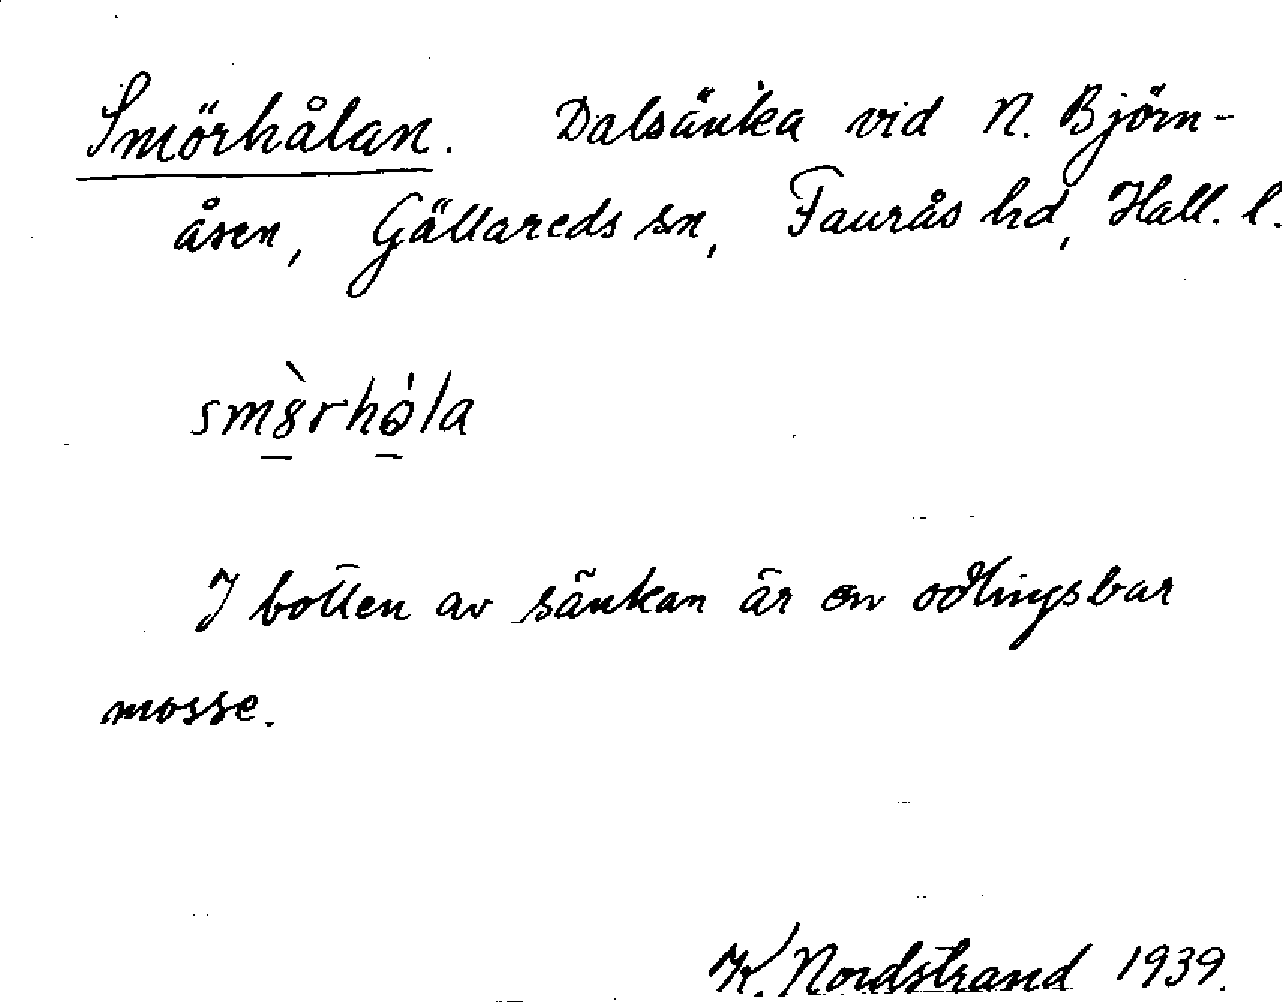 Smörhålan. Dalsänka vid N. Björn-
åsen, Gällareds sn, Faurås hd, Hall. l.
I botten av sänkan är en odlingsbar
mosse.
K. Nordstrand 1939.